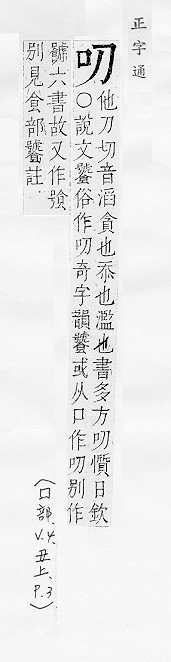 正字通
叨
他刀切音滔貪也忝也濫也書多方叨懫日欽
〇說文饕俗作叨奇字韻饕或从口作叨別作
六書故又作
別見食部饕註
（口部. V.4. 丑上. P.3.）